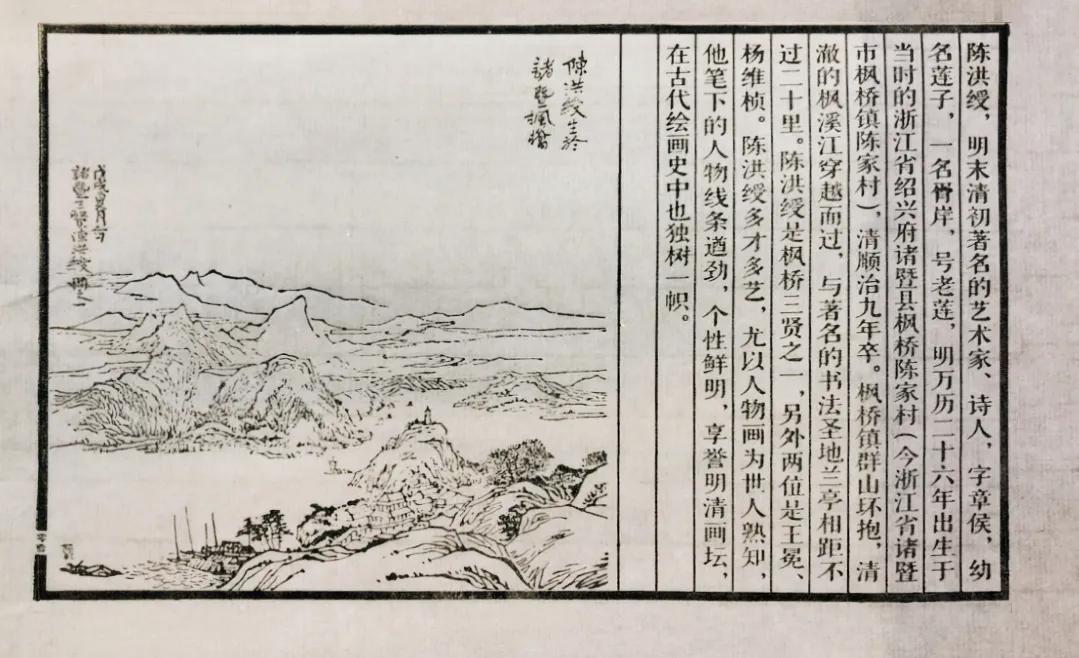 陈洪绶，明末清初著名的艺术家、诗人，字章侯，幼
名莲子，一名胥岸，号老莲，明万历二十六年出生于
当时的浙江省绍兴府诸暨县枫桥陈家村（今浙江省诸暨
市枫桥镇陈家村），清顺治九年卒。枫桥镇群山环抱，清
澈的枫溪江穿越而过，与著名的书法圣地兰亭相距不
过二十里。陈洪绶是枫桥三贤之一，另外两位是王冕、
杨维桢。陈洪绶多才多艺，尤以人物画为世人熟知，
他笔下的人物线条遒劲，个性鲜明，享誉明清画坛，
在古代绘画史中也独树一帜。
陳洪綬生於
諸暨楓橋
戊戌
諸暨三賢陳洪綬冊之一